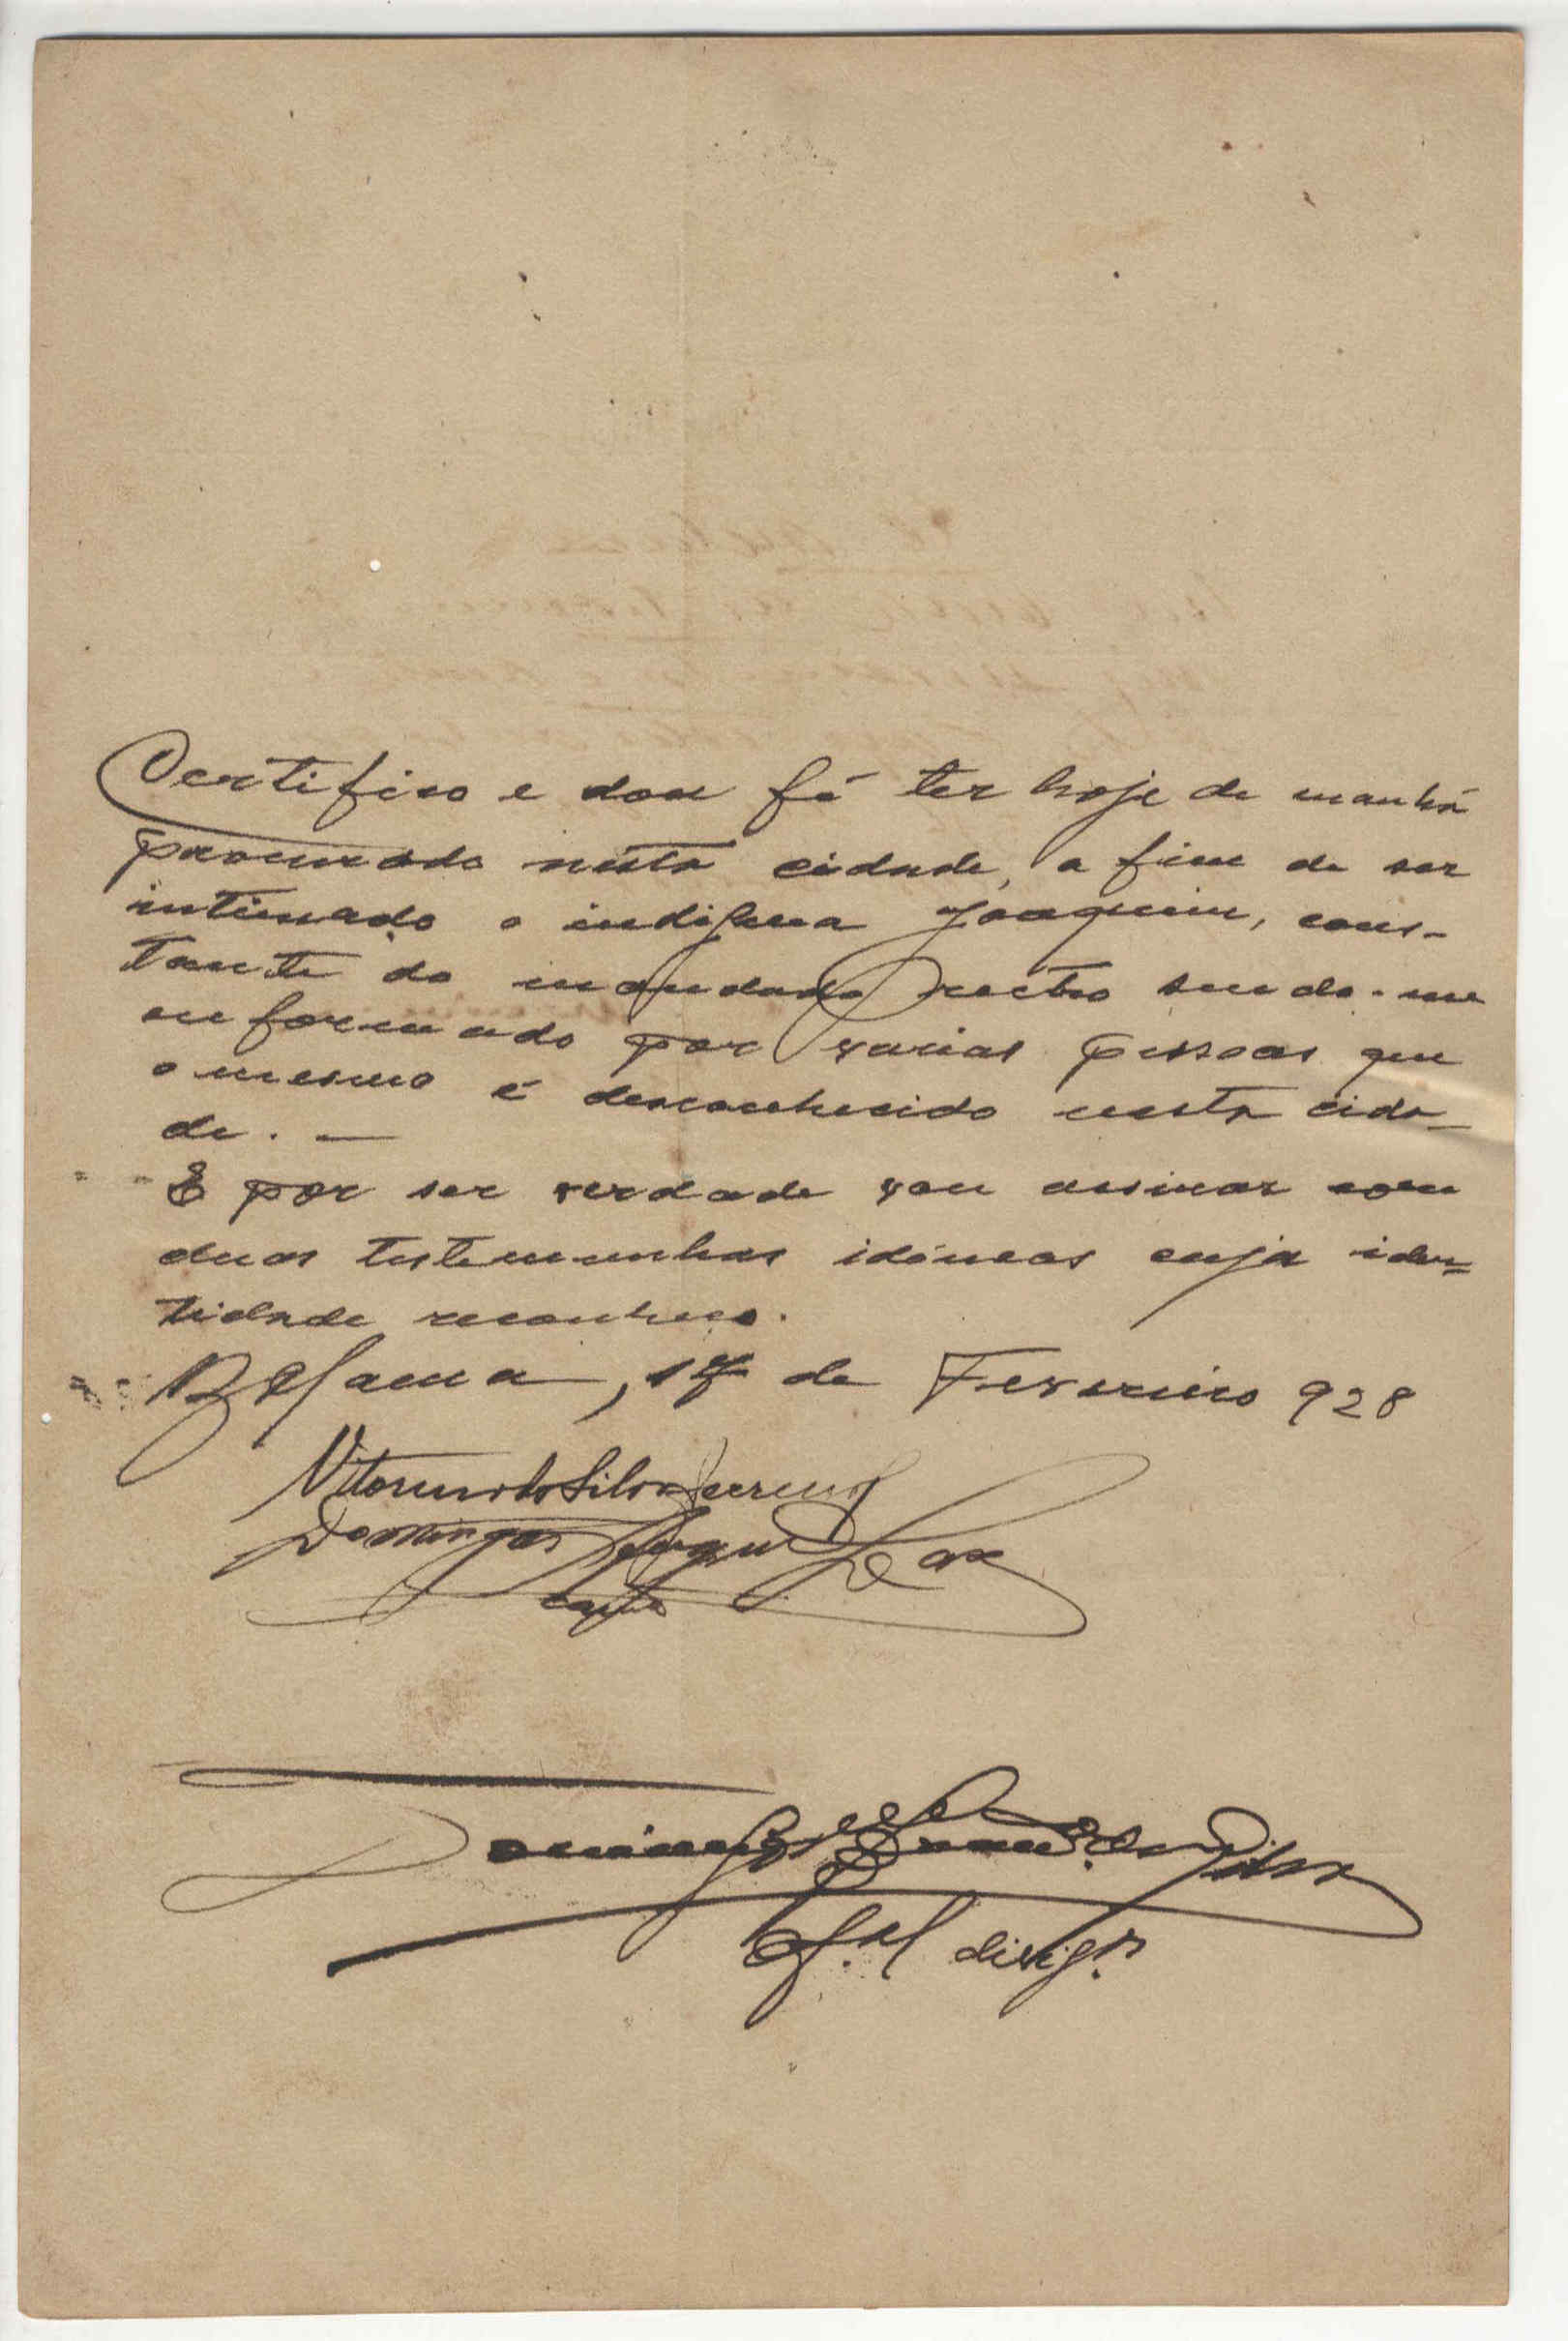 Certifico e dou fé ter hoje de manhã
procurado nésta cidade, a fim de ser
intimado o indigena Joaquim, cons-
tante do mandado rectro sendo-me
enformado por varias pessoas que
o mesmo é desconhecido nesta cida-
de. —
E por ser verdade vou assinar com
duas testemunhas idóneas cuja iden=
tidade reconheço.
Bolama, 17 de Fevereiro 928
Vitorino da Silva
Domingos Vaz
Domingos da Silva
Of.al dilig.as